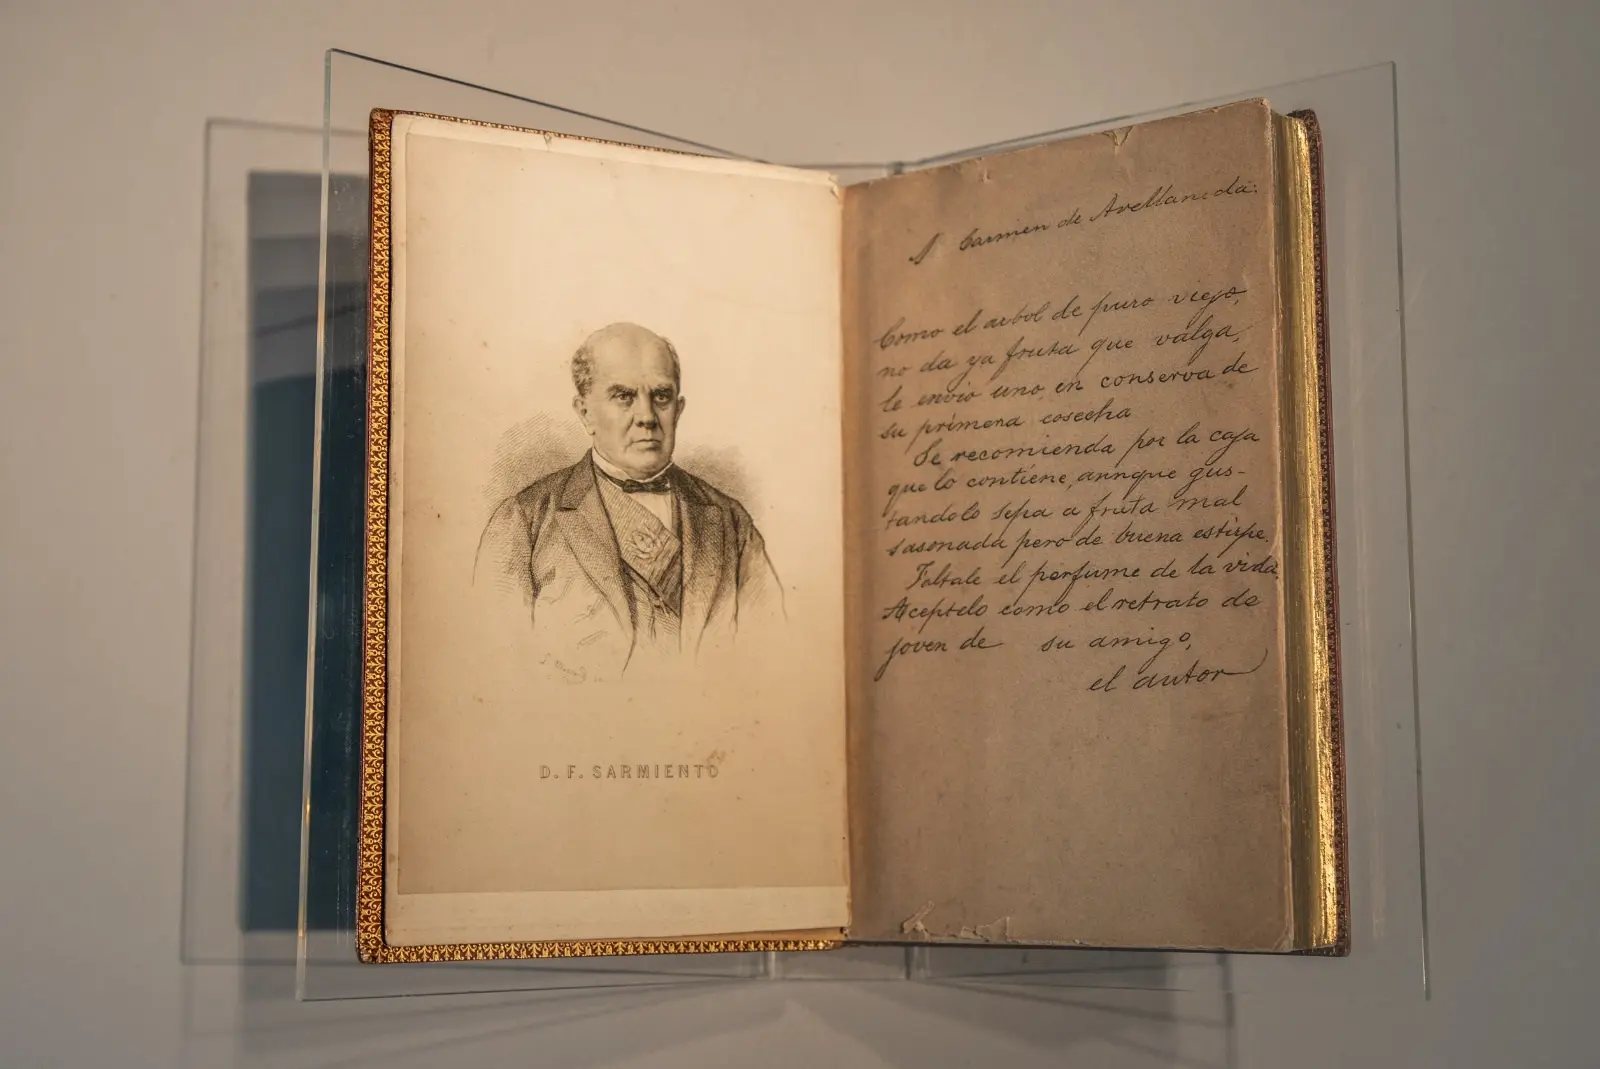 D. F. SARMIENTO
A Carmen de Avellaneda:
Como el arbol de puro viejo,
no da ya fruta que valga,
le envio uno, en conserva de
su primera cosecha
Se recomienda por la caja
que lo contiene, aunque gus-
tandolo sepa a fruta mal
sasonada pero de buena estirpe.
Faltale el perfume de la vida.
Aceptelo como el retrato de
joven de su amigo,
el autor